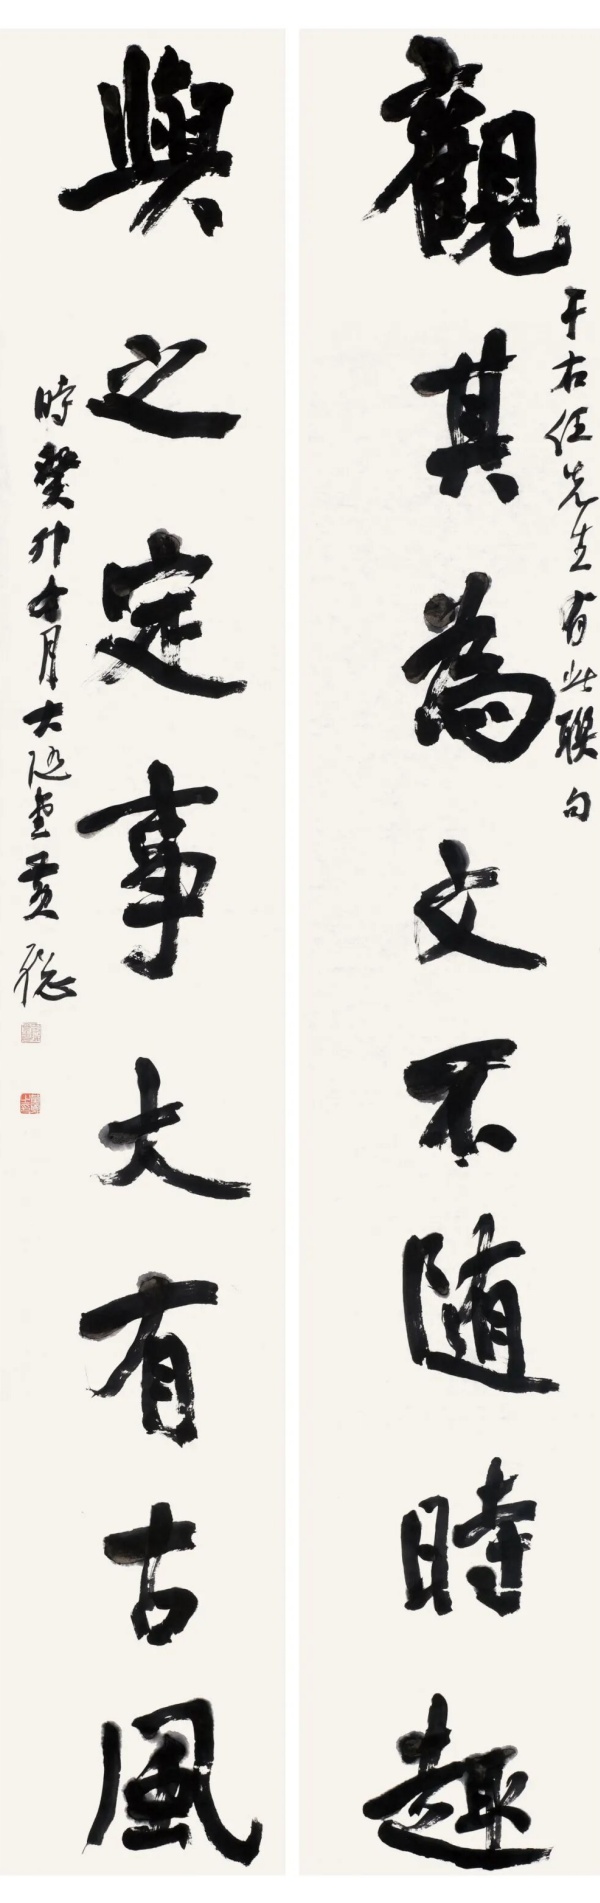 觀其為文不随時趣
于右任先生有此聯句
與之定事大有古風
時癸卯十月大隱堂黃聡